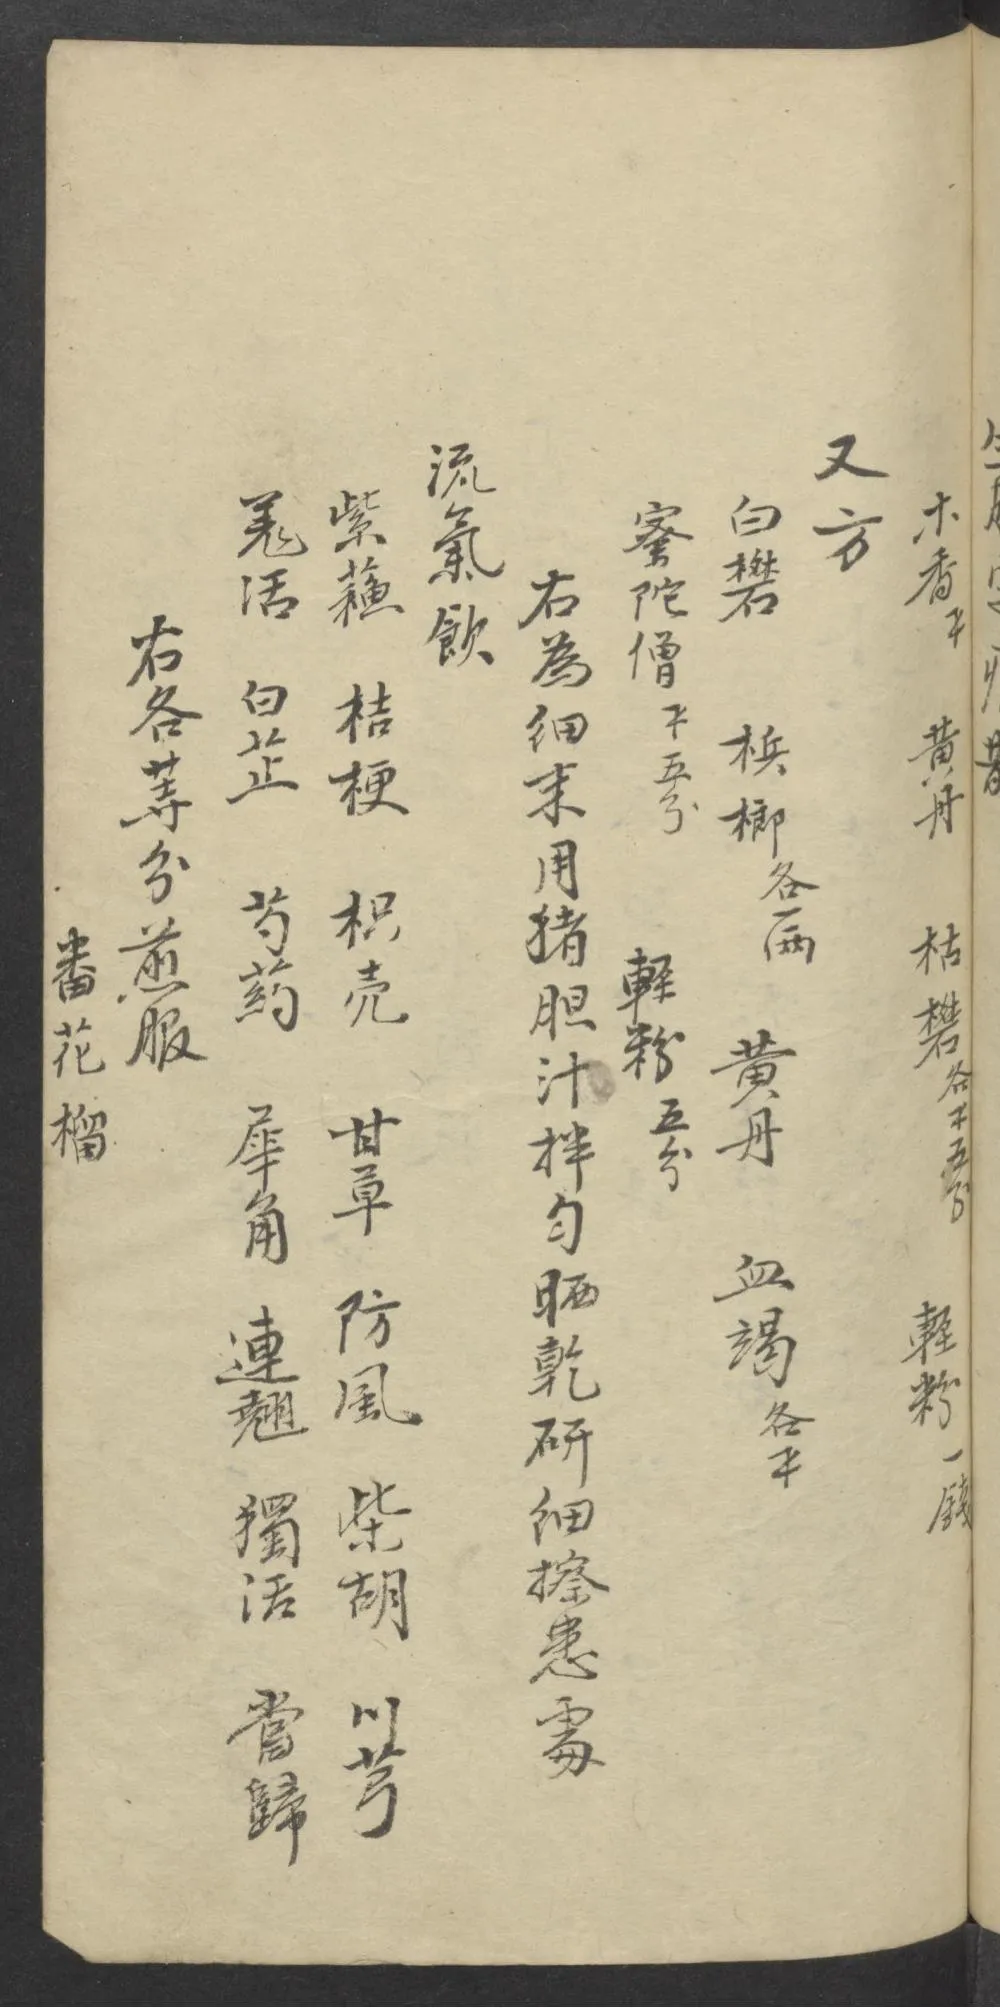 木香 黃丹 枯礬各 五分 輕粉一錢
又方
白礬 梹榔各一両 黃丹 血竭各
密陀僧 五分 輕粉五分
右為細末用猪胆汁拌勻晒乾研细擦患處
流氣飲
紫蘓 桔梗 枳壳 甘草 防風 柴胡 川芎
羗活 白芷 芍药 犀角 連翹 獨活 當歸
右各等分煎服
番花榴